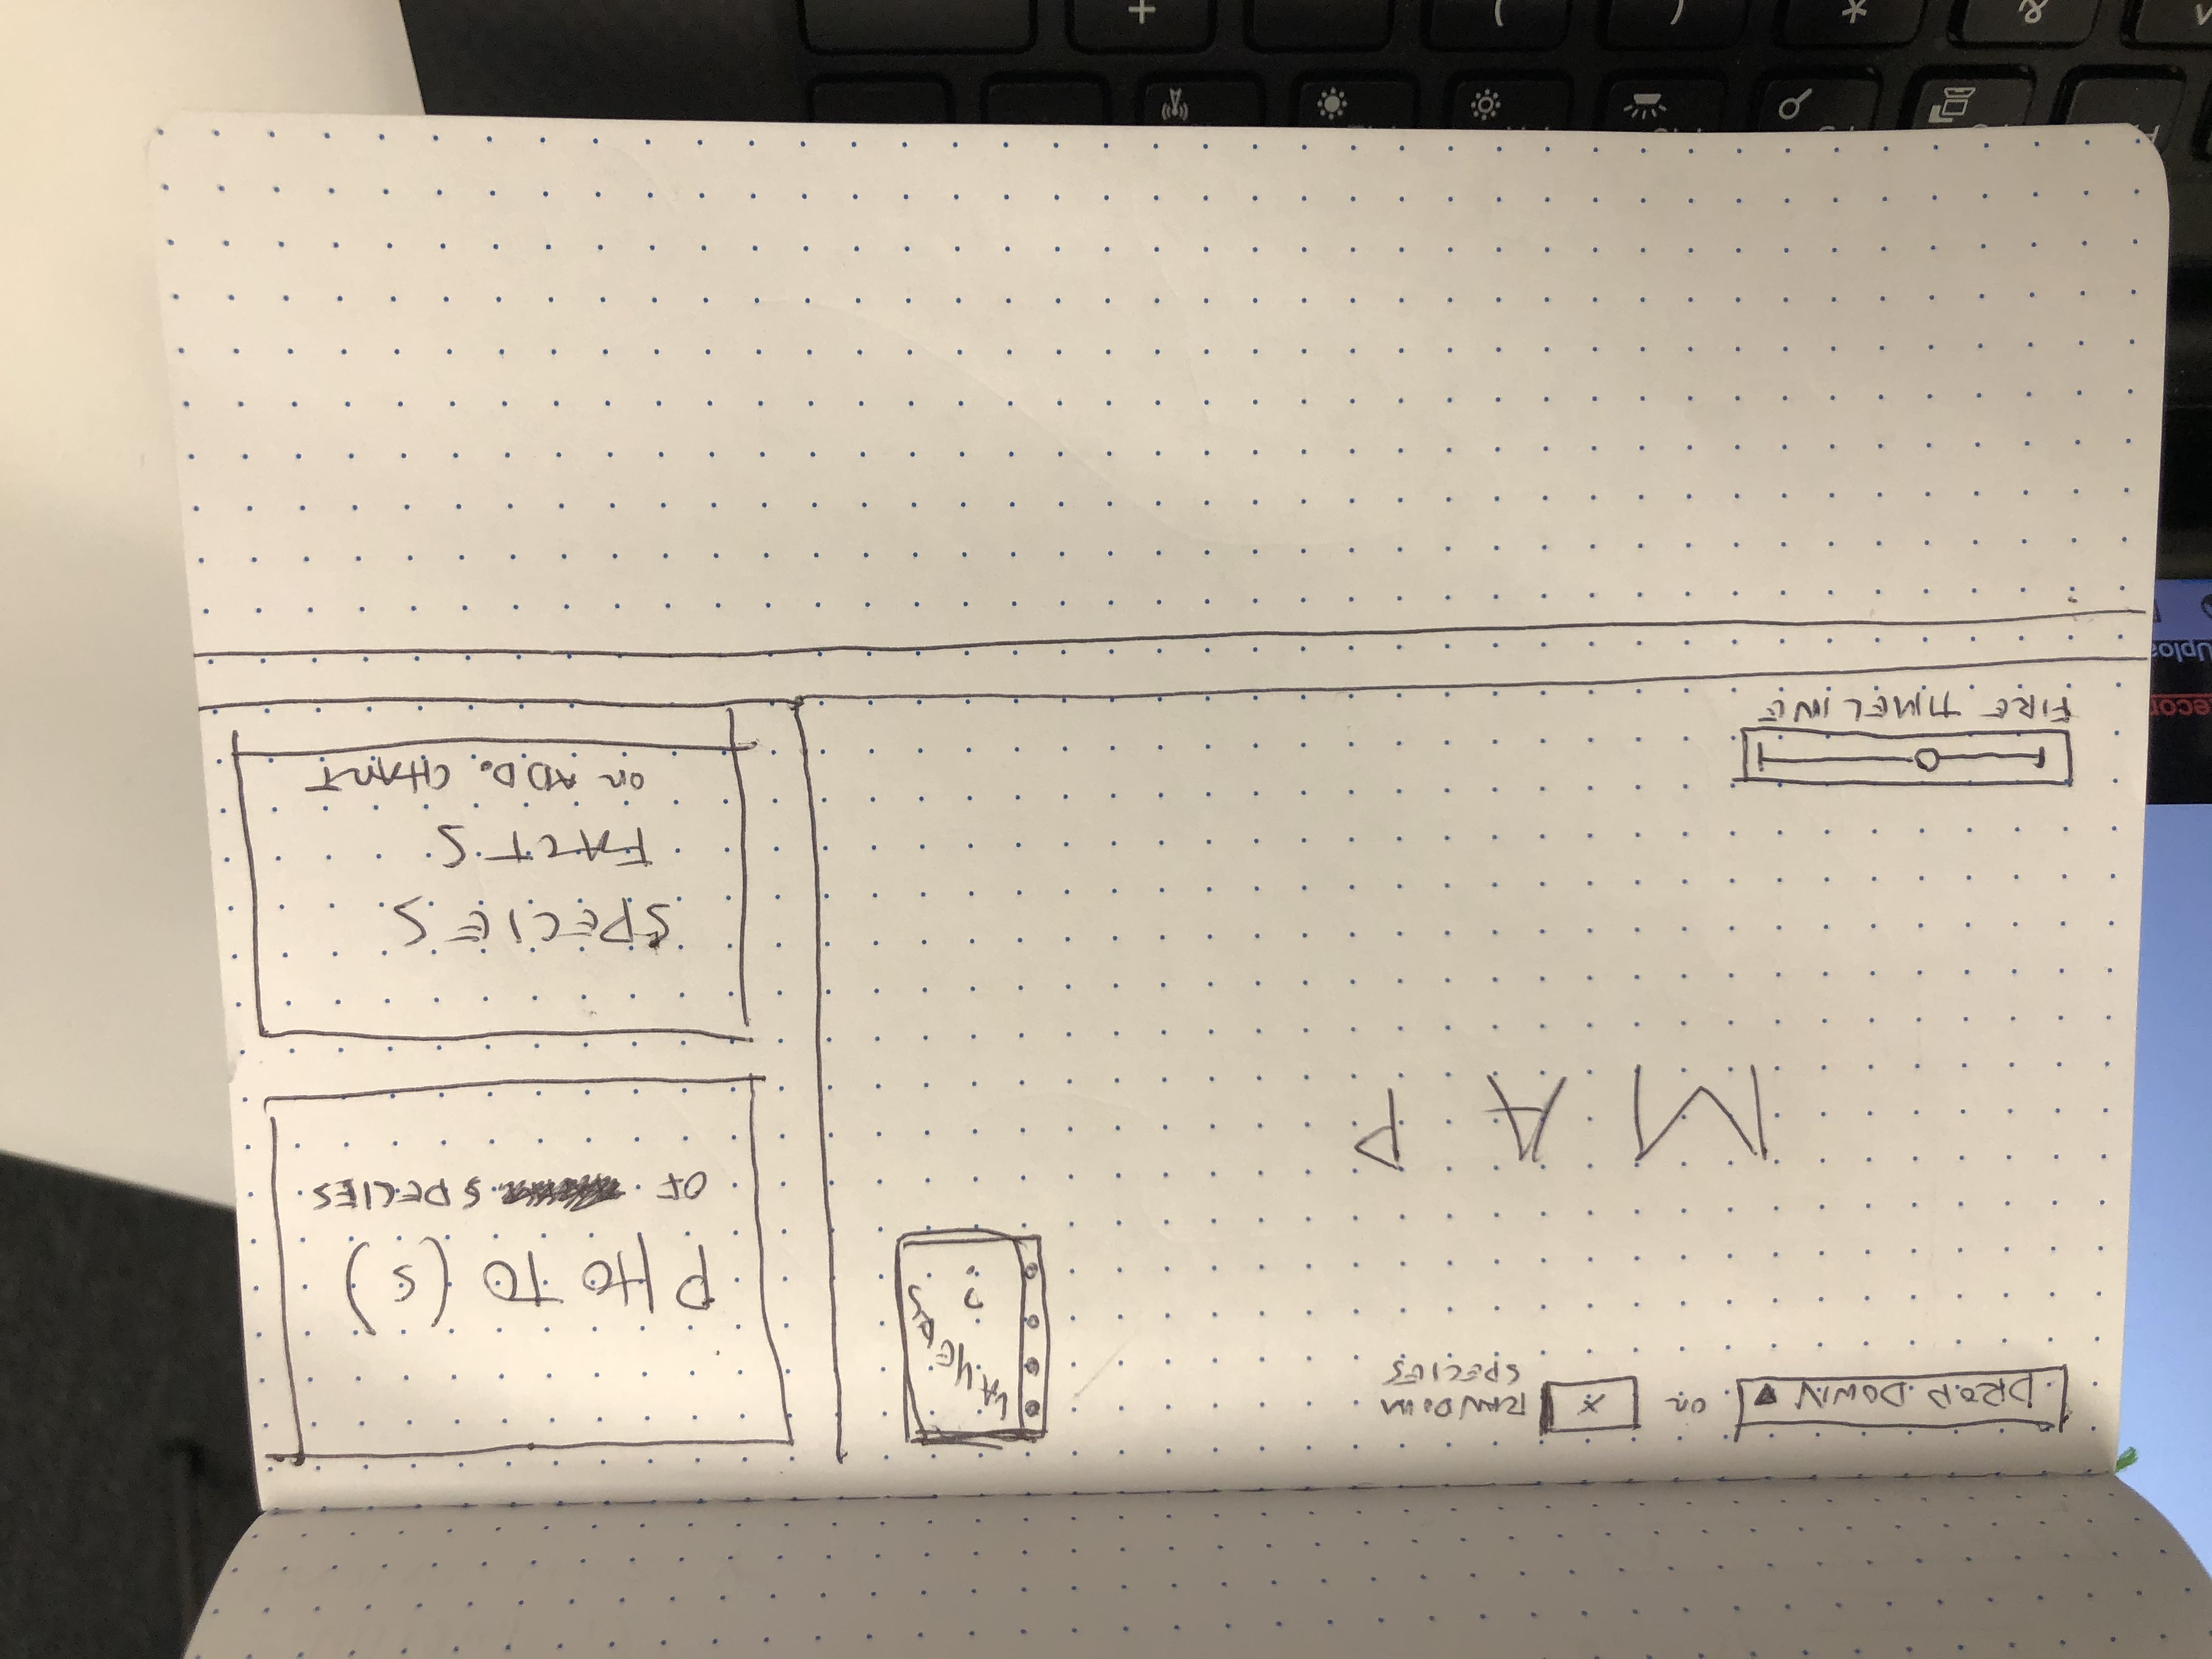 DROP DOWN ▼ OR X RANDOM
SPECIES
LAYERS
?
MAP
FIRE TIMELINE
PHOTO(S)
OF SPECIES
SPECIES
FACTS
OR ADD. CHART
Uploa
&
*
(
)
+